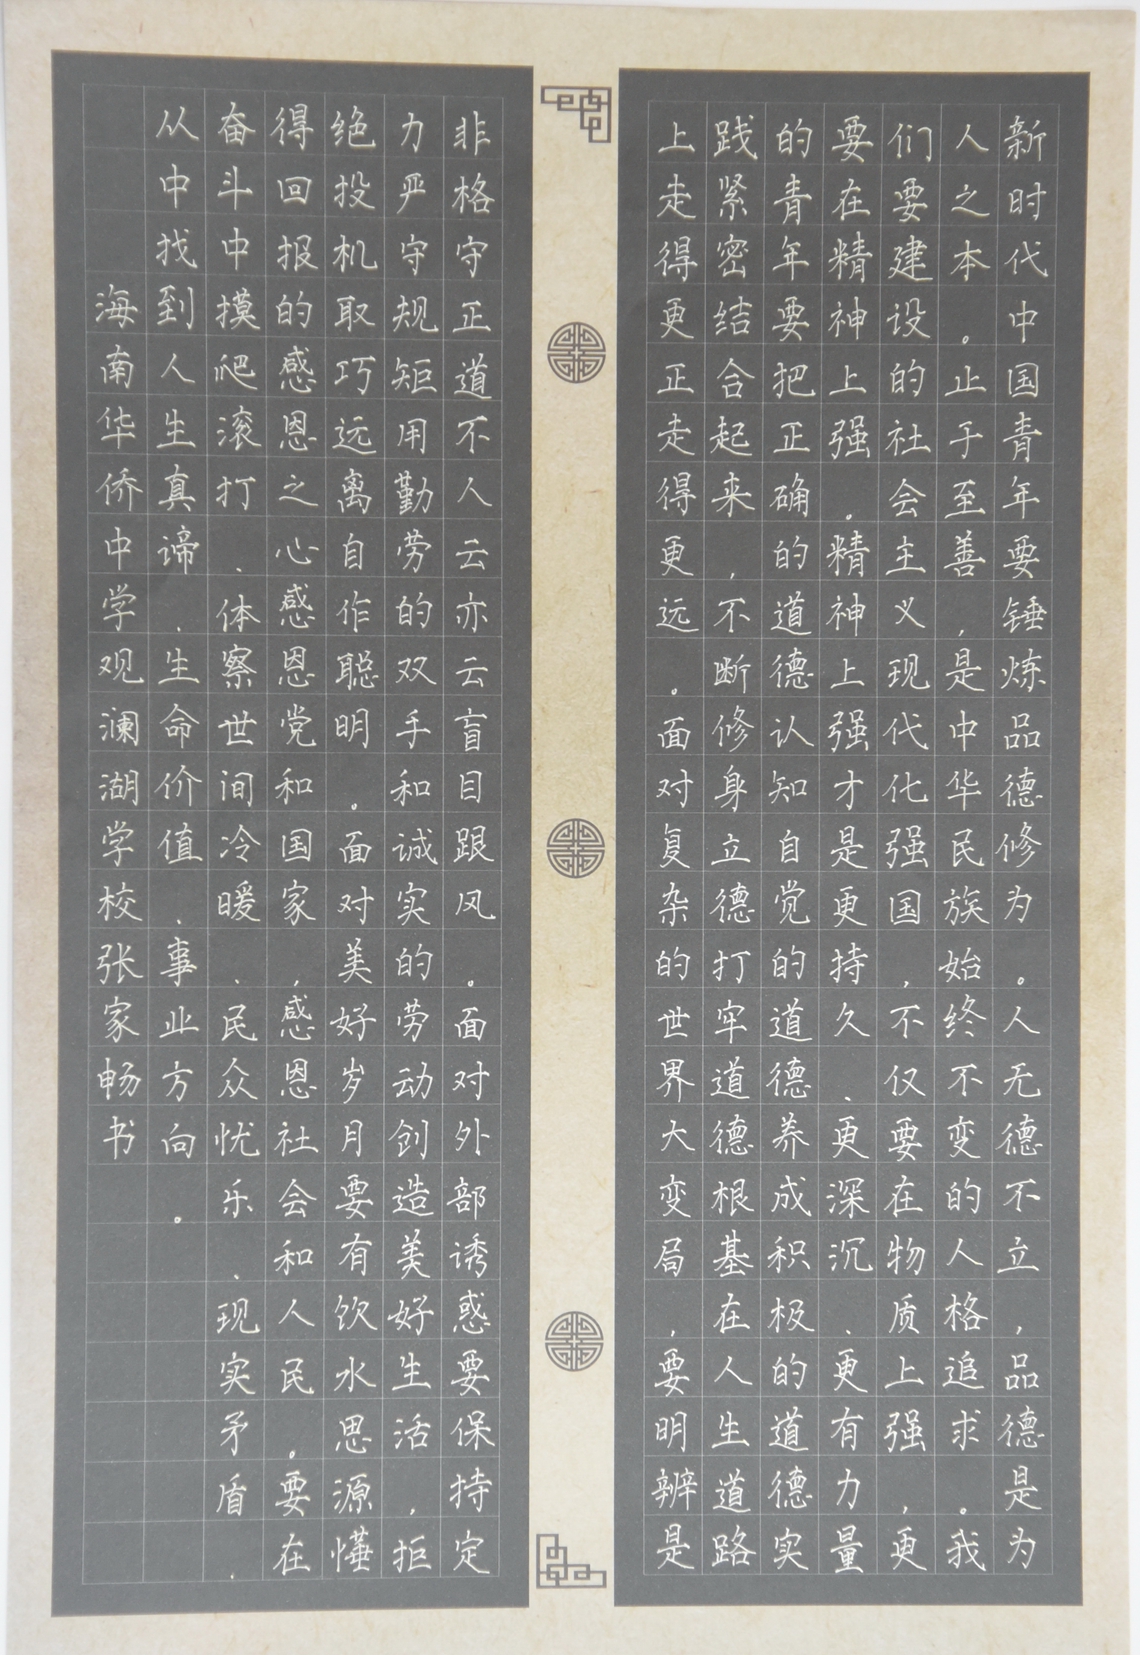 新时代中国青年要锤炼品德修为。人无德不立，品德是为
人之本。止于至善，是中华民族始终不变的人格追求。我
们要建设的社会主义现代化强国，不仅要在物质上强，更
要在精神上强。精神上强才是更持久、更深沉、更有力量
的青年要把正确的道德认知自觉的道德养成积极的道德实
践紧密结合起来，不断修身立德打牢道德根基在人生道路
上走得更正走得更远。面对复杂的世界大变局，要明辨是
非格守正道不人云亦云盲目跟风。面对外部诱惑要保持定
力严守规矩用勤劳的双手和诚实的劳动创造美好生活，拒
绝投机取巧远离自作聪明。面对美好岁月要有饮水思源懂
得回报的感恩之心感恩党和国家，感恩社会和人民。要在
奋斗中摸爬滚打、体察世间冷暖、民众忧乐、现实矛盾、
从中找到人生真谛、生命价值、事业方向。
海南华侨中学观澜湖学校张家畅书